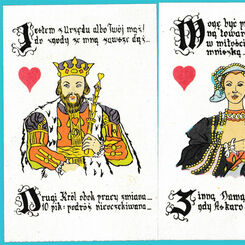 Jestem z Urzędu albo Twój mąż!
do zgody ze mną zawsze dąż...
Drugi Król obok pracy zmiana...
10 pik: podróż nieoczekiwana...
Mogę być
na towar
w miłości
mniejszą
Z inną Damą
gdy As karo